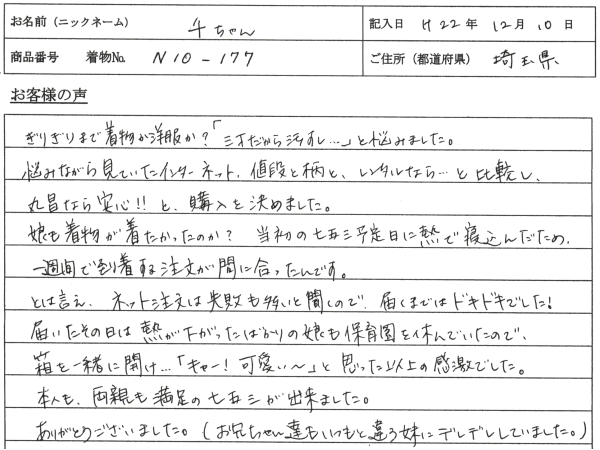 お名前（ニックネーム） 千ちゃん 記入日 H22年 12月 10日
商品番号 着物No. N10-177 ご住所（都道府県） 埼玉県
お客様の声
ぎりぎりまで着物か洋服か？「三才だから汚すし…」と悩みました。
悩みながら見ていたインターネット、値段と柄と、レンタルなら…と比較し、
丸昌なら安心!! と、購入を決めました。
娘も着物が着たかったのか？ 当初の七五三予定日に熱で寝込んだため、
一週間で到着する注文が間に合ったんです。
とは言え、ネット注文は失敗も多いと聞くので、届くまではドキドキでした!
届いたその日は熱が下がったばかりの娘も保育園を休んでいたので、
箱を一緒に開け…「キャー! 可愛い〜」と思った以上の感激でした。
本人も、両親も満足の七五三が出来ました。
ありがとうございました。（お兄ちゃん達もいつもと違う妹にデレデレしていました。）